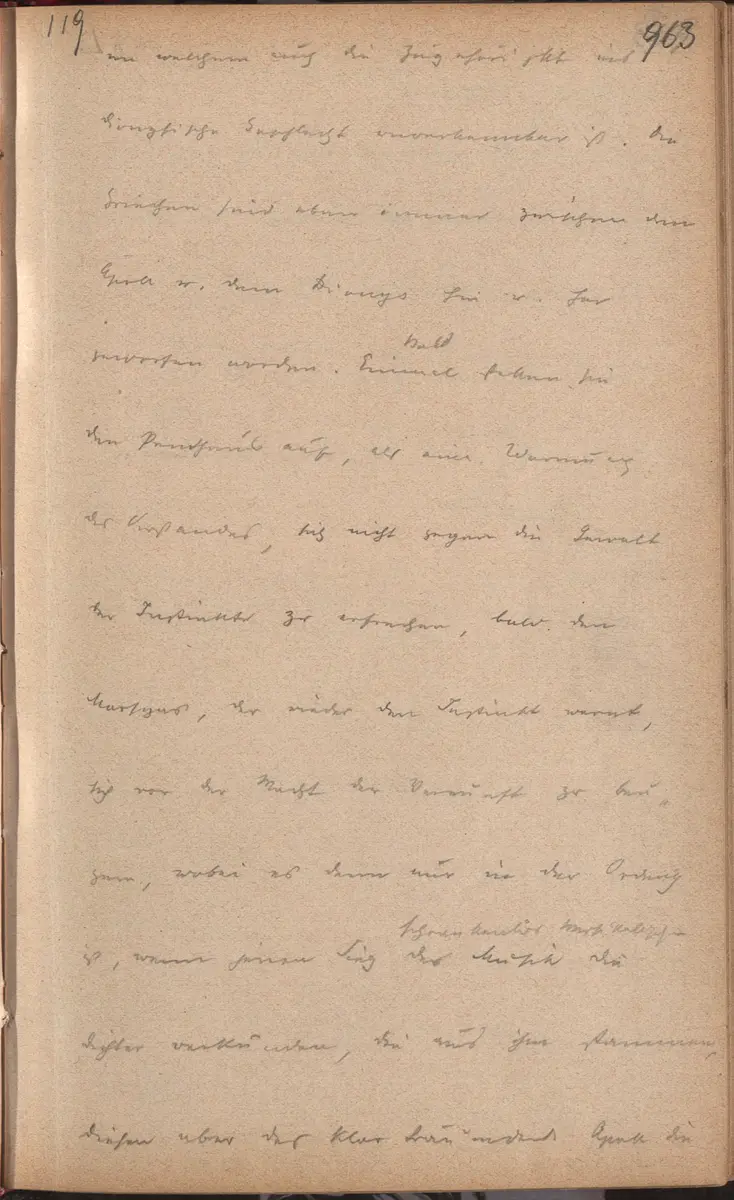 119
963
in welchem auch die Zugehörigkt ins
dionysische Geschlecht unverkennbar ist. Die
Griechen sind eben immer zwischen dem
Apoll u. dem Dionys hin u. her
geworfen worden.
bald
Einmal stellen sie
den Pentheus auf, als eine Warnung
des Verstandes, sich nicht gegen die Gewalt
der Instinkte zu erfrechen, bald den
Marsyas, der wieder den Instinkt warnt,
sich vor der Macht der Vernunft zu beu„
gen, wobei es denn nur in der Ordnung
ist, wenn jenen Sieg der Musik die
dichter verkünden, die aus ihm stammen,
diesen aber des klar träumenden Apoll die